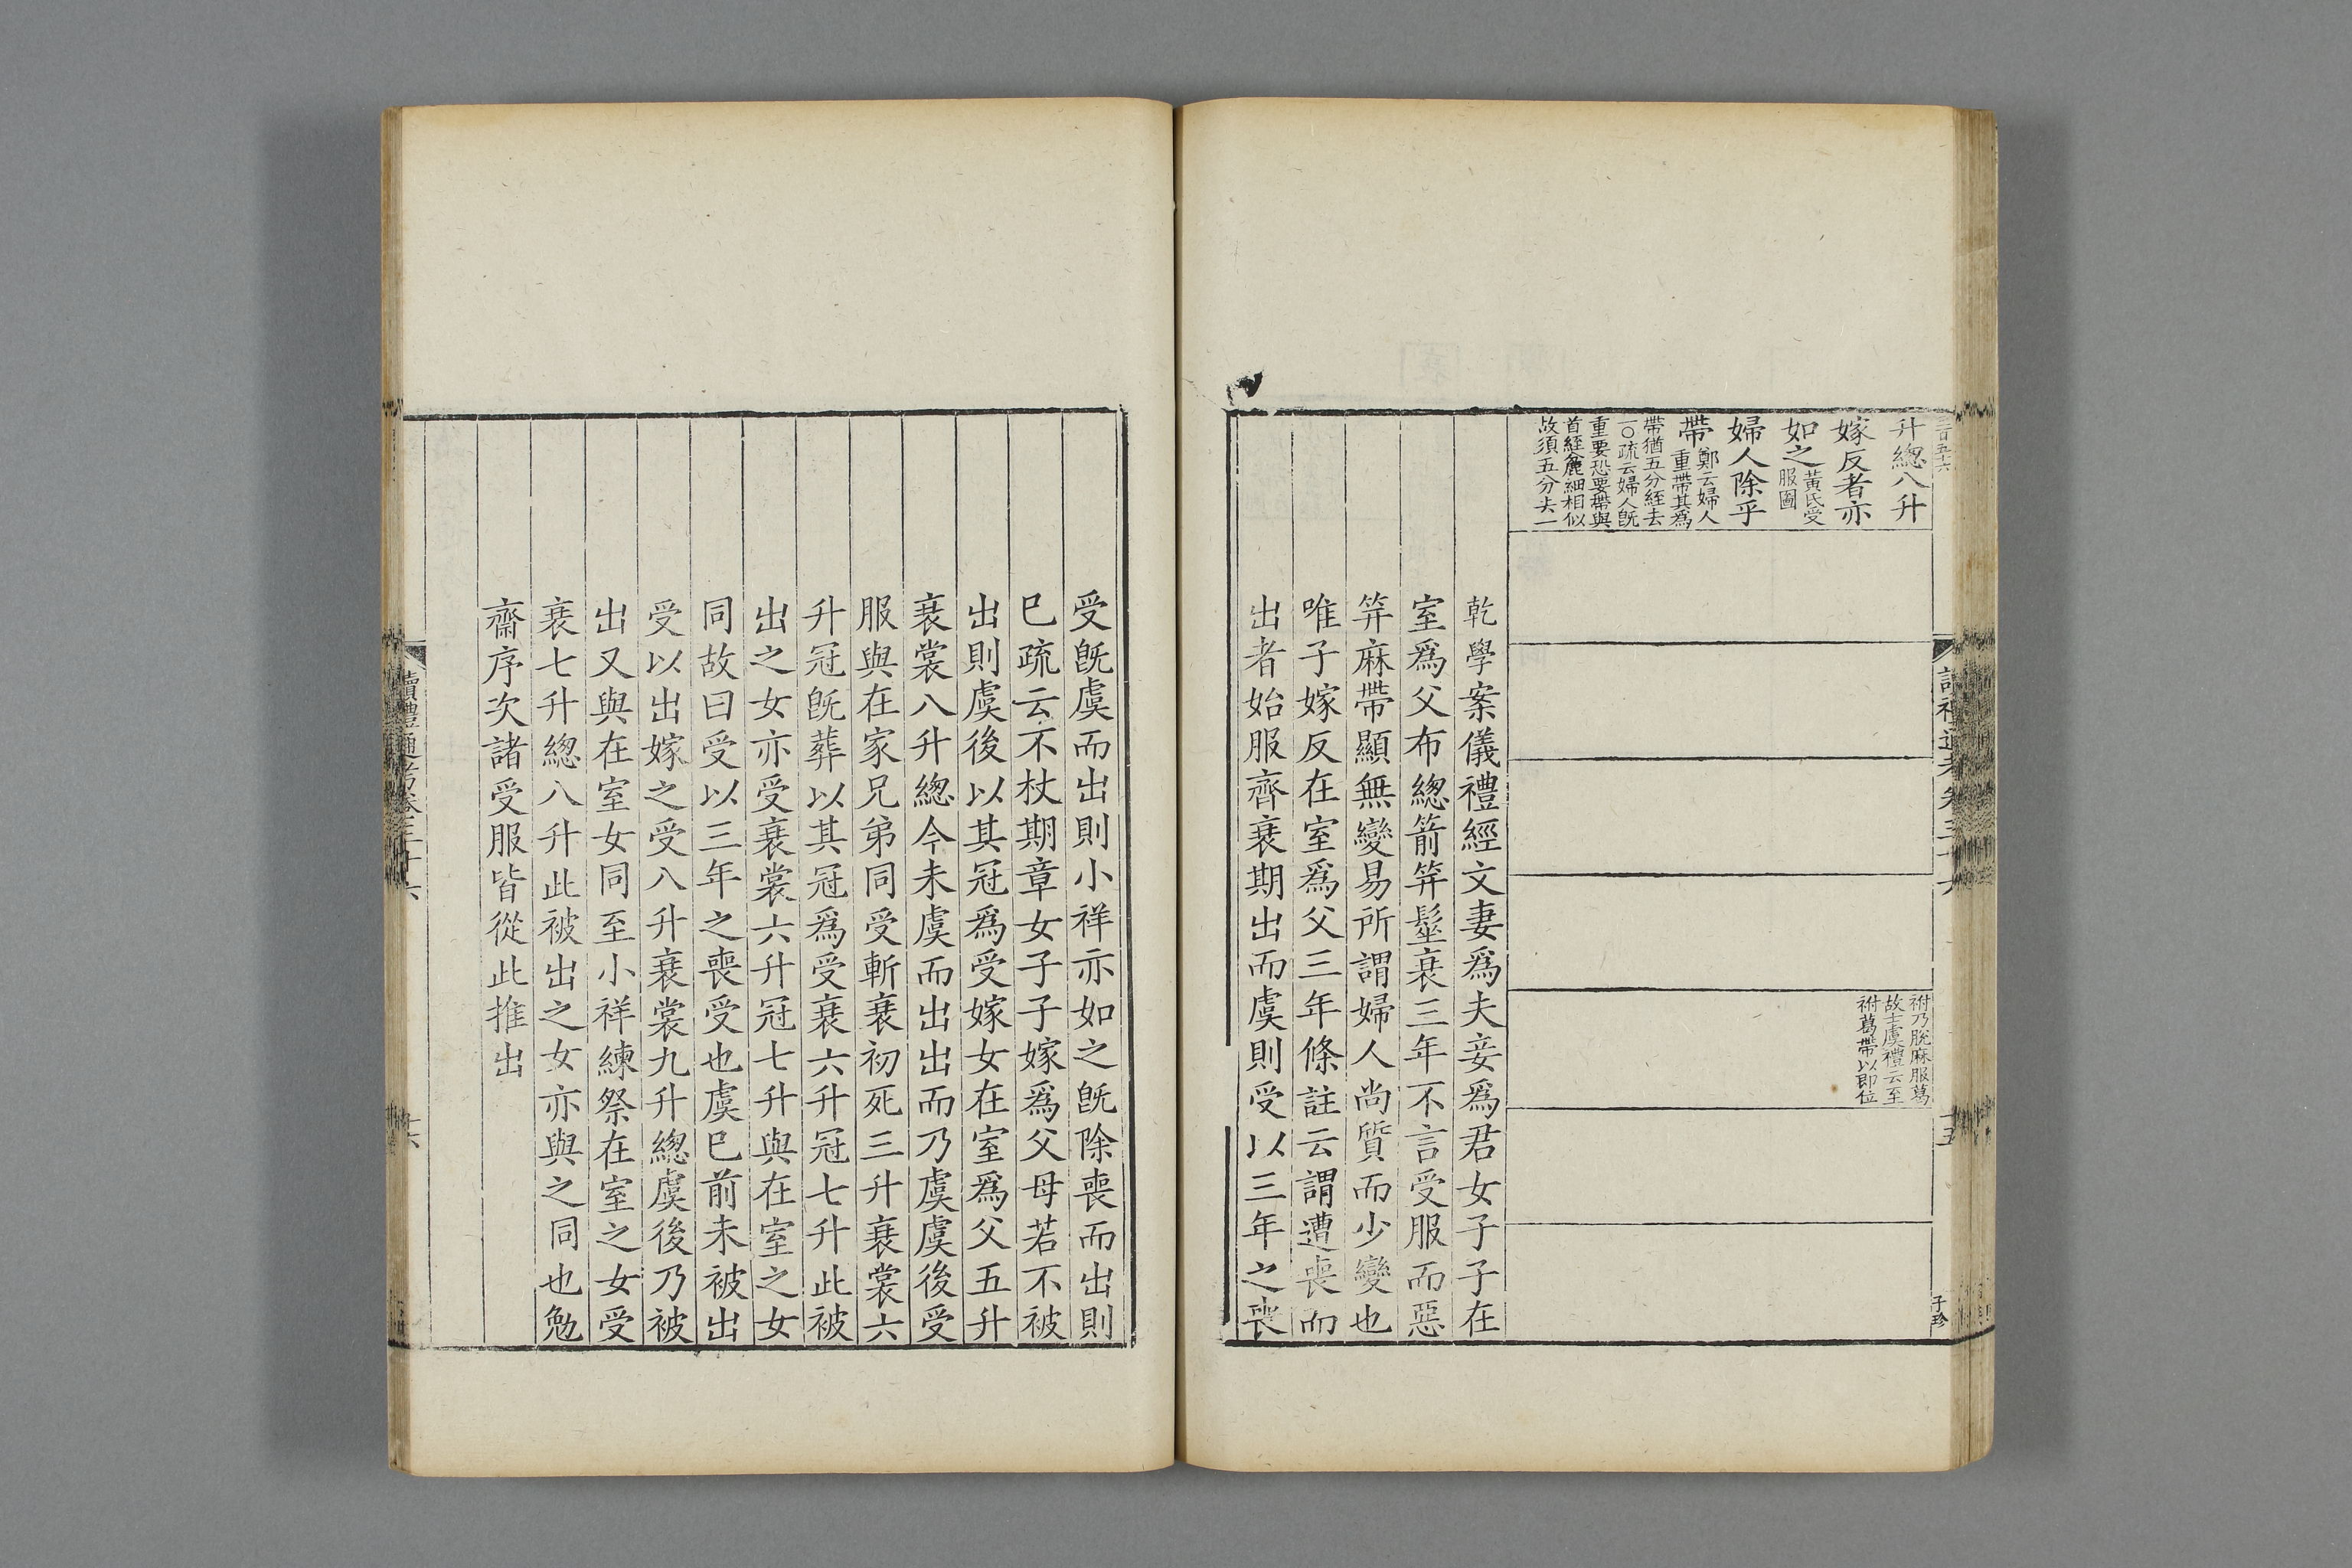 三百五十六
讀禮通考卷三十六
十五
子珍
升總八升
嫁反者亦
如之黃氏受服圖
婦人除乎
帶鄭云婦人重帶其爲
帶猶五分絰去
一〇疏云婦人旣
重要恐要帶與
首絰麁細相似
故須五分去一
祔乃脫麻服葛
故士虞禮云至
祔葛帶以即位
乾學案儀禮經文妻爲夫妾爲君女子子在
室爲父布總箭笄髽衰三年不言受服而惡
笄麻帶顯無變易所謂婦人尚質而少變也
唯子嫁反在室爲父三年條註云謂遭喪而
出者始服齊衰期出而虞則受以三年之喪
受旣虞而出則小祥亦如之旣除喪而出則
巳疏云不杖期章女子子嫁爲父母若不被
出則虞後以其冠爲受嫁女在室爲父五升
衰裳八升總今未虞而出出而乃虞虞後受
服與在家兄弟同受斬衰初死三升衰裳六
升冠旣葬以其冠爲受衰六升冠七升此被
出之女亦受衰裳六升冠七升與在室之女
同故曰受以三年之喪受也虞巳前未被出
受以出嫁之受八升衰裳九升總虞後乃被
出又與在室女同至小祥練祭在室之女受
衰七升總八升此被出之女亦與之同也勉
齋序次諸受服皆從此推出
讀禮通考卷三十六
十六